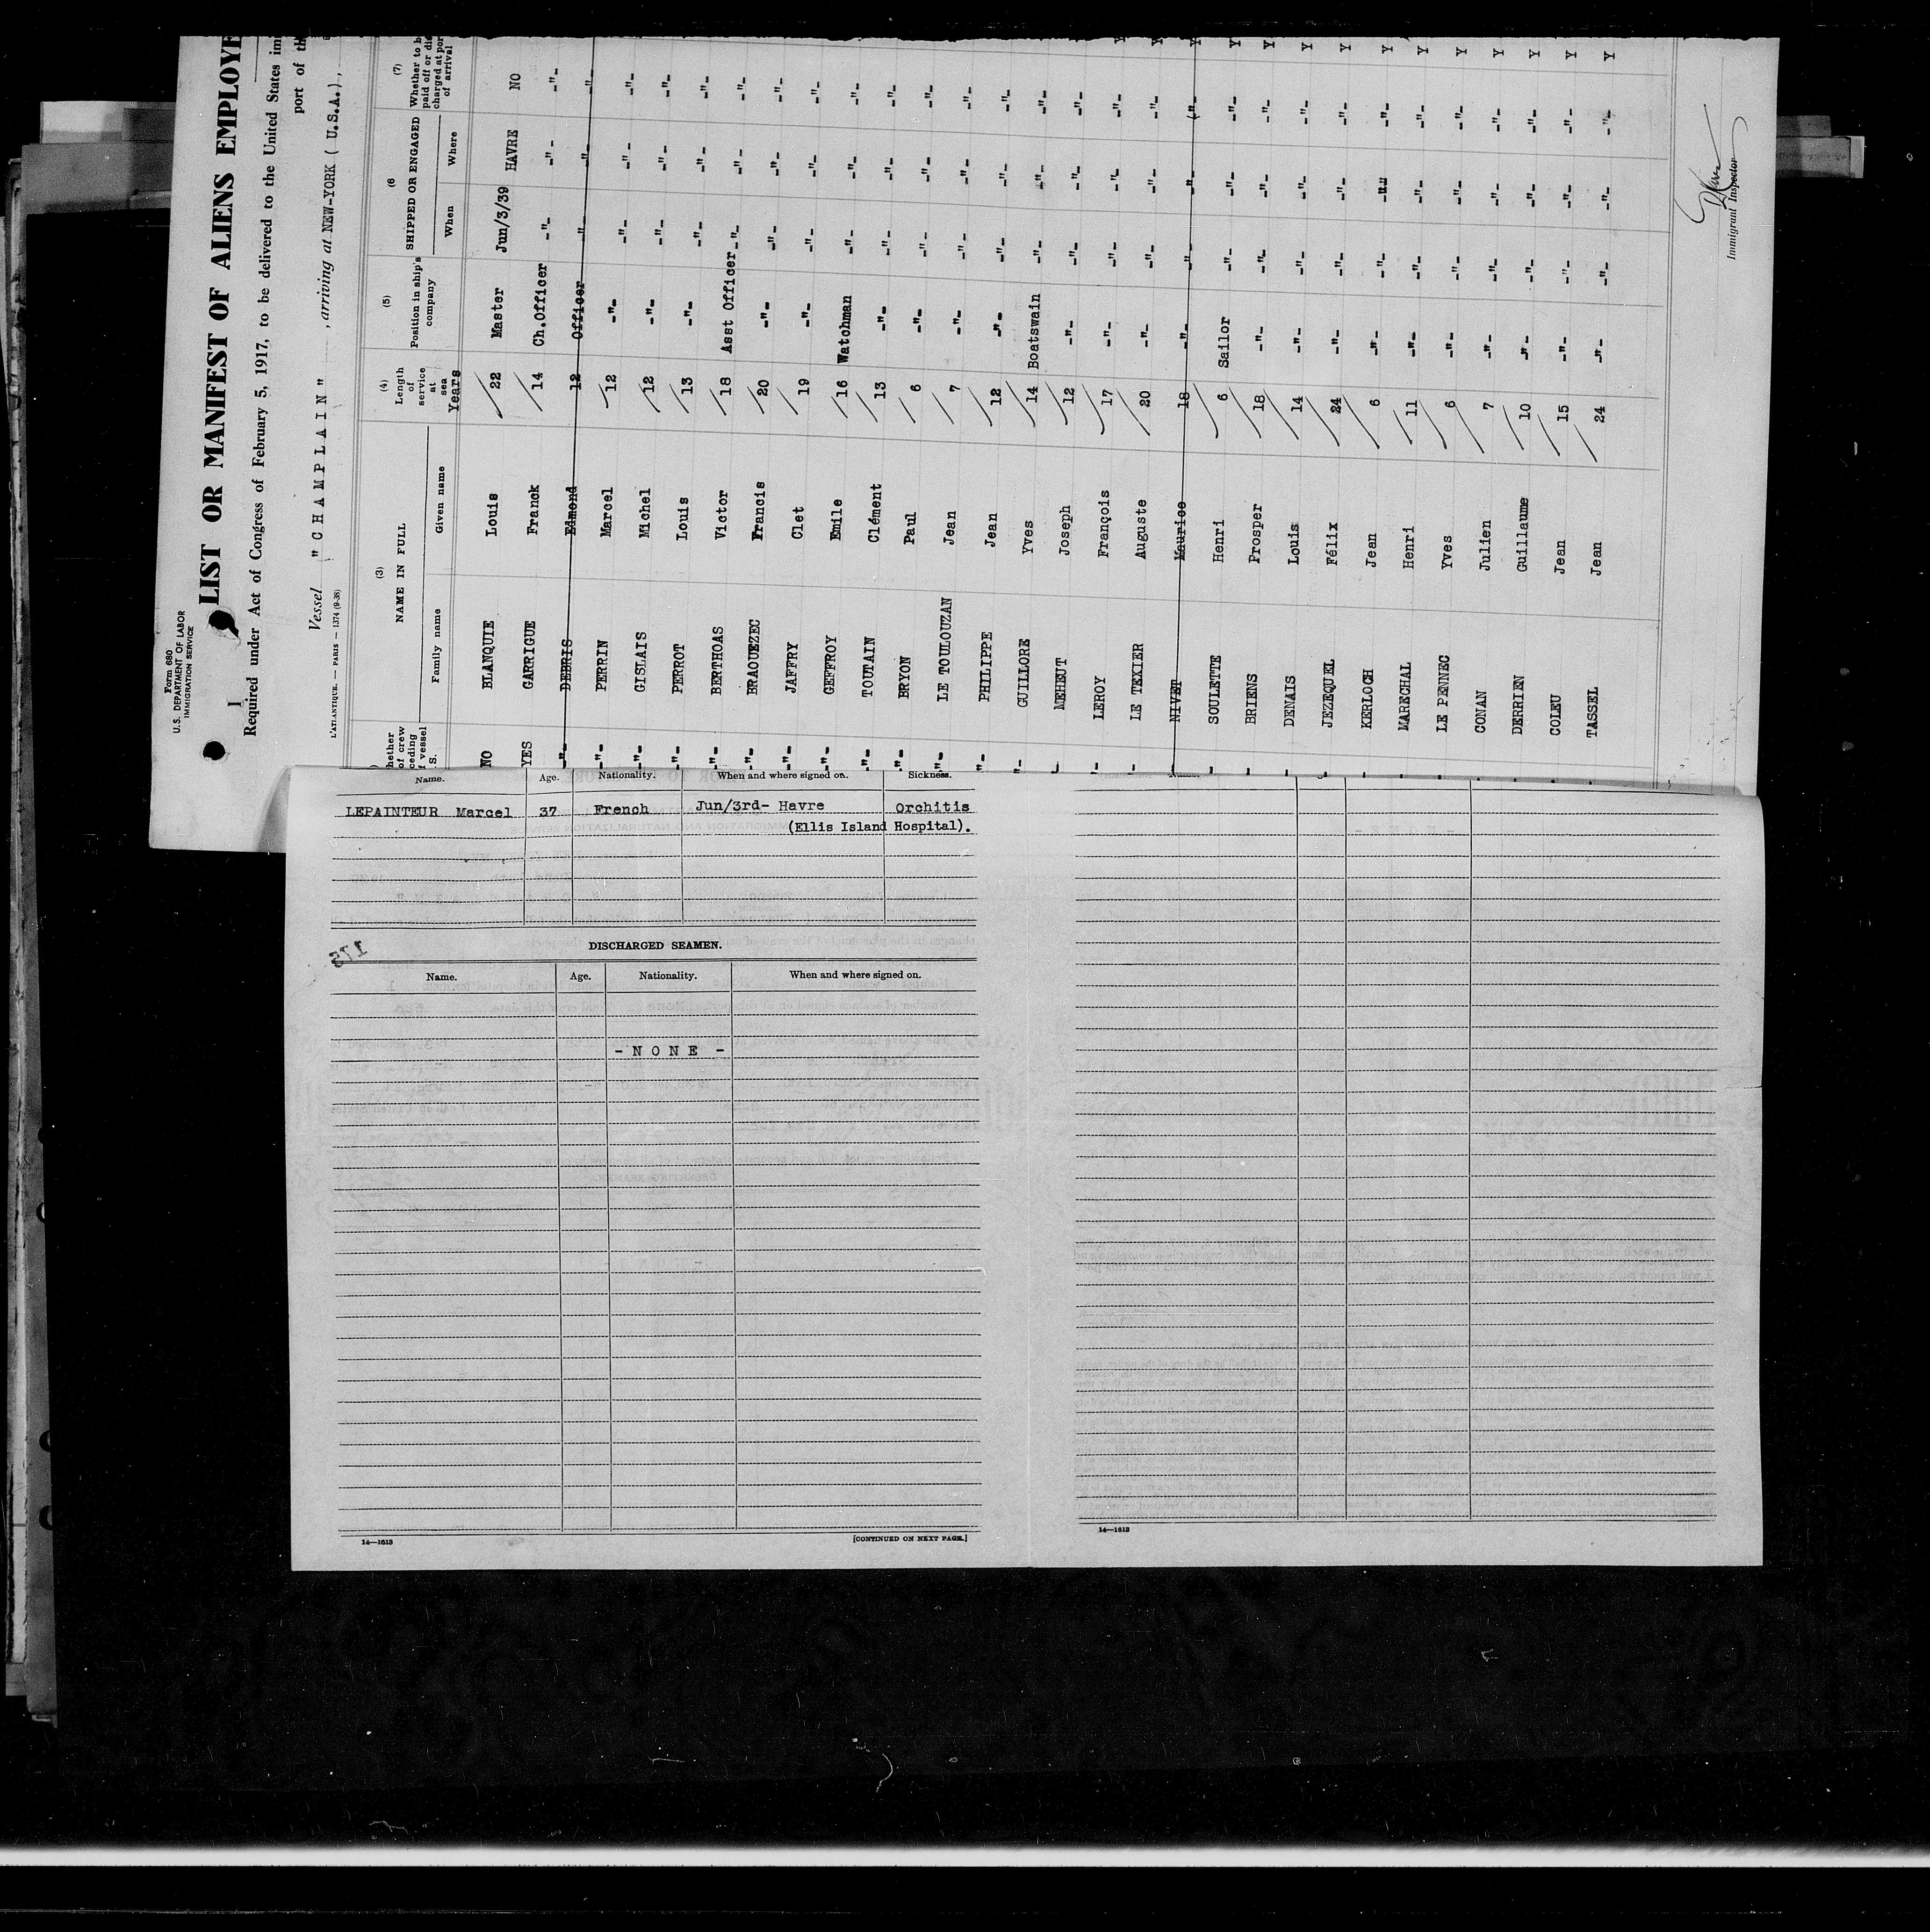 Form 680
U.S. DEPARTMENT OF LABOR
IMMIGRATION SERVICE
1
LIST OR MANIFEST OF ALIENS EMPLOYE
Required under Act of Congress of February 5, 1917, to be delivered to the United States im
port of th
Vessel "CHAMPLAIN", arriving at NEW-YORK ( U.S.A.),
L'ATLANTIQUE. — PARIS — 1374 (9-38)
(3) (4) (5) (6 (7)
NAME IN FULL Length of service at sea Position in ship's company SHIPPED OR ENGAGED Whether to b paid off or dis charged at por of arrival
hether of crew ceding f vessel S. Family name Given name Years When Where
NO BLANQUIE Louis 22 Master Jun/3/39 HAVRE NO
YES GARRIGUE Franck 14 Ch.Officer -"- -"- -"-
-"- DEBRIS Edmond 12 Officer -"- -"- -"-
-"- PERRIN Marcel 12 -"- -"- -"- -"-
-"- GISLAIS Michel 12 -"- -"- -"- -"-
-"- PERROT Louis 13 -"- -"- -"- -"-
-"- BERTHOAS Victor 18 Asst Officer -"- -"- -"-
-"- BRAOUEZEC Francis 20 -"- -"- -"- -"-
-"- JAFFRY Clet 19 -"- -"- -"- -"-
-"- GEFFROY Emile 16 Watchman -"- -"- -"-
-"- TOUTAIN Clément 13 -"- -"- -"- -"-
-"- BRYON Paul 6 -"- -"- -"- -"-
-"- LE TOULOUZAN Jean 7 -"- -"- -"- -"-
-"- PHILIPPE Jean 12 -"- -"- -"- -"-
"- GUILLORE Yves 14 Boatswain -"- -"- -"-
MEHEUT Joseph 12 -"- -"- -"- -"-
LEROY François 17 -"- -"- -"- -"- Y
LE TEXIER Auguste 20 -"- -"- -"- -"- Y
NIVET Maurice 18 -"- -"- -"- -"- Y
SOULETTE Henri 6 Sailor -"- -"- -"- Y
BRIENS Prosper 18 -"- -"- -"- -"- Y
DENAIS Louis 14 -"- -"- -"- -"- Y
JEZEQUEL Félix 24 -"- -"- -"- -"- Y
KERLOCH Jean 6 -"- -"- -"- -"- Y
MARECHAL Henri 11 -"- -"- -"- -"- Y
LE PENNEC Yves 6 -"- -"- -"- -"- Y
CONAN Julien 7 -"- -"- -"- -"- Y
DERRIEN Guillaume 10 -"- -"- -"- -"- Y
COLEU Jean 15 -"- -"- -"- -"- Y
TASSEL Jean 24 -"- -"- -"- -"- Y
Immigrant Inspector
Name. Age. Nationality. When and where signed on. Sickness.
LEPAINTEUR Marcel 37 French Jun/3rd- Havre Orchitis
(Ellis Island Hospital).
DISCHARGED SEAMEN.
Name. Age. Nationality. When and where signed on.
- N O N E -
14—1613 [CONTINUED ON NEXT PAGE.]
14—1613